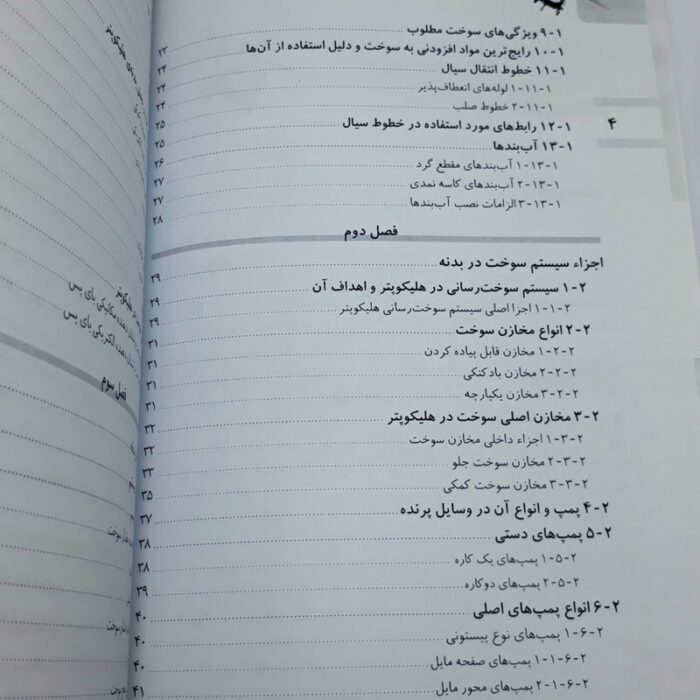 ۱-۹ ویژگی‌های سوخت مطلوب
۱-۱۰ رایج‌ترین مواد افزودنی به سوخت و دلیل استفاده از آن‌ها ۲۳
۱-۱۱ خطوط انتقال سیال ۲۴
۱-۱۱-۱ لوله‌های انعطاف‌پذیر ۲۴
۱-۱۱-۲ خطوط صلب ۲۴
۱-۱۲ رابط‌های مورد استفاده در خطوط سیال ۲۵
۴
۱-۱۳ آب‌بندها ۲۵
۱-۱۳-۱ آب‌بندهای مقطع گرد ۲۶
۱-۱۳-۲ آب‌بندهای کاسه نمدی ۲۷
۱-۱۳-۳ الزامات نصب آب‌بندها ۲۷
۲۸
فصل دوم
اجزاء سیستم سوخت در بدنه ۲۹
۲-۱ سیستم سوخت‌رسانی در هلیکوپتر و اهداف آن ۲۹
۲-۱-۱ اجزا اصلی سیستم سوخت‌رسانی هلیکوپتر ۲۹
۲-۲ انواع مخازن سوخت ۳۱
۲-۲-۱ مخازن قابل پیاده کردن ۳۱
۲-۲-۲ مخازن بادکنکی ۳۱
۲-۲-۳ مخازن یکپارچه ۳۱
۲-۳ مخازن اصلی سوخت در هلیکوپتر ۳۲
۲-۳-۱ اجزاء داخلی مخازن سوخت ۳۲
۲-۳-۲ مخازن سوخت جلو ۳۳
۲-۳-۳ مخازن سوخت کمکی ۳۵
۲-۴ پمپ و انواع آن در وسایل پرنده ۳۷
۲-۵ پمپ‌های دستی ۳۸
۲-۵-۱ پمپ‌های یک کاره ۳۸
۲-۵-۲ پمپ‌های دوکاره ۳۹
۲-۶ انواع پمپ‌های اصلی ۴۰
۲-۶-۱ پمپ‌های نوع پیستونی ۴۰
۲-۶-۱-۱ پمپ‌های صفحه مایل ۴۰
۲-۶-۱-۲ پمپ‌های محور مایل ۴۱
هلیکوپتر
مکانیکی بای پس
الکتریکی بای پس
فصل سوم
سوخت
سوخت